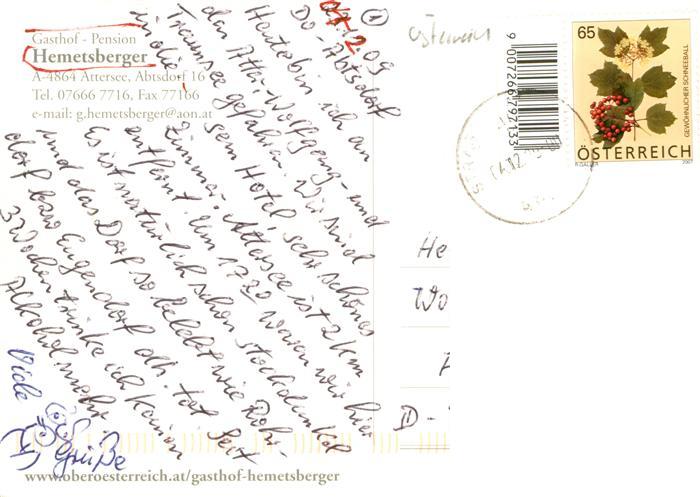 Gasthof - Pension
Hemetsberger
A-4864 Attersee, Abtsdorf 16
Tel. 07666 7716, Fax 77166
e-mail: g.hemetsberger@aon.at
①
04.12.09
Do - Abtsdorf
Heute bin ich an
den Atter-Wolfgang- und
Traunsee gefahren. Wir sind
in die
sem Hotel, sehr schönes
Zimmer. Attersee ist 2 km
entfernt. Um 17.30 waren wir hier
Es ist natürlich schon stockdunkel
und das Dorf so belebt wie
dorf bzw. Eugendorf oh. tot. Seit
3 Wochen trinke ich keinen
Alkohol mehr.
Viele
Grüße
www.oberoesterreich.at/gasthof-hemetsberger
9 007266 797133
65
GEWÖHNLICHER SCHNEEBALL
ÖSTERREICH
2007
He
Wo
D -